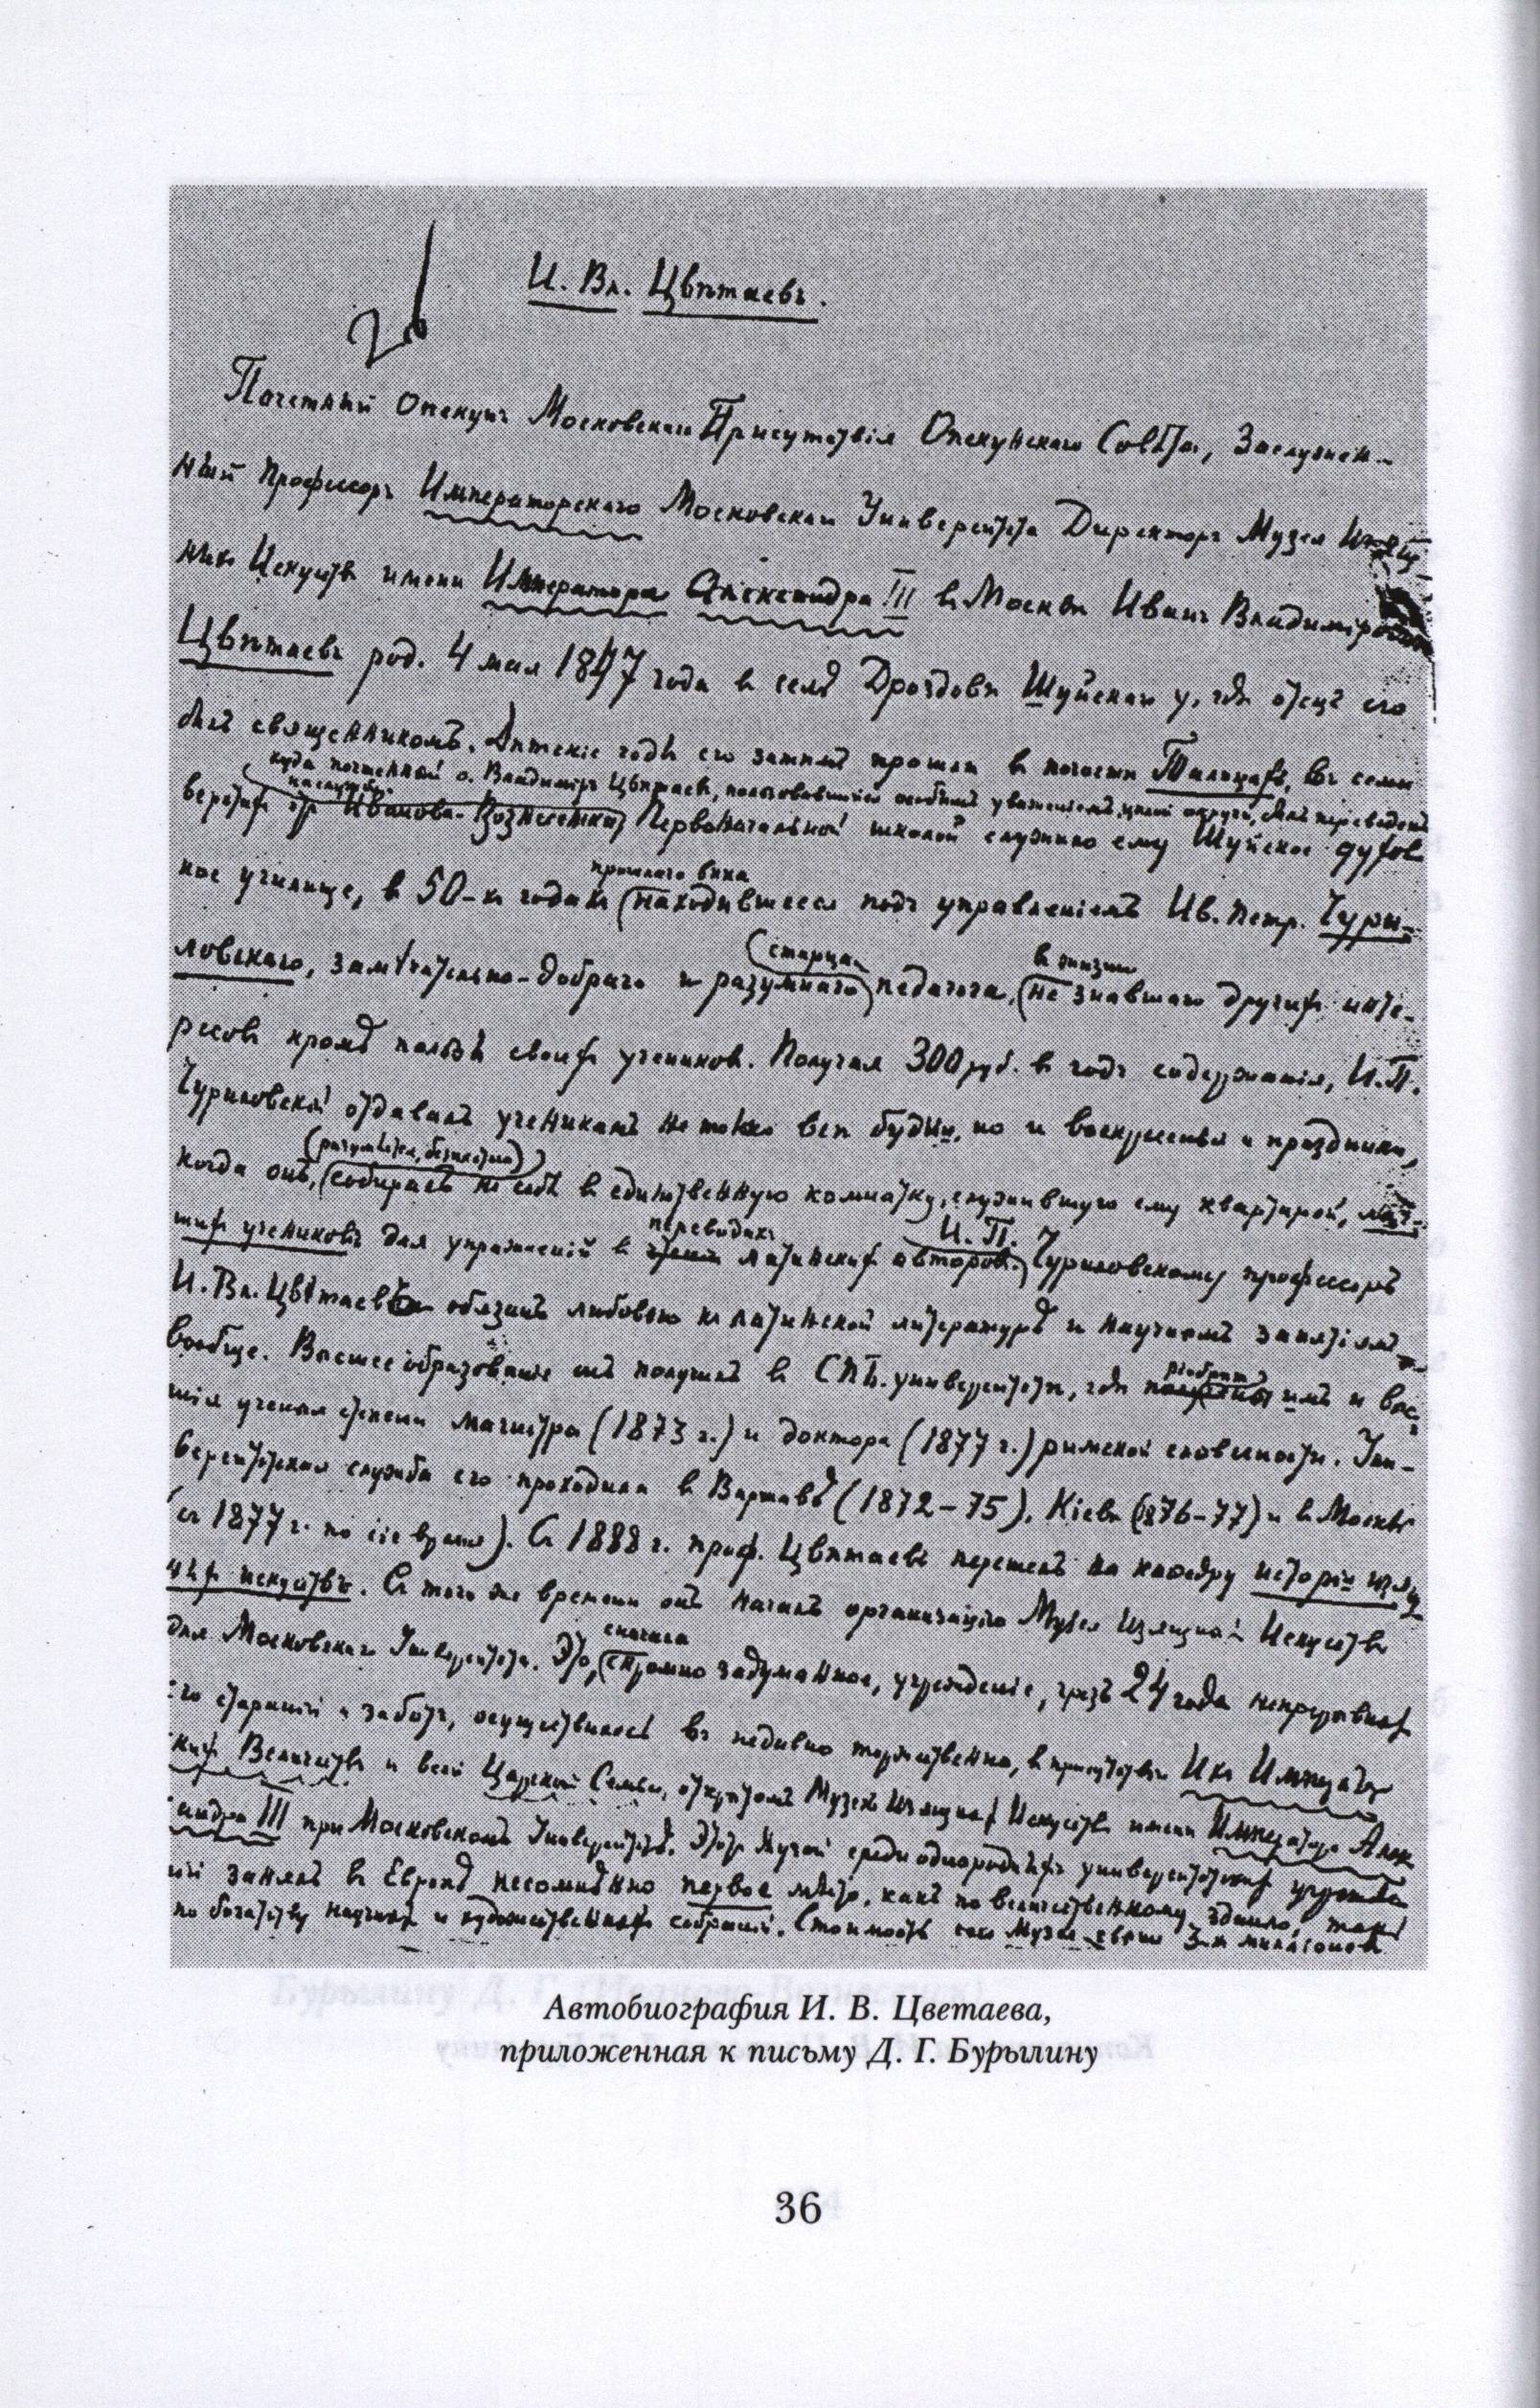 И. Вл. Цвѣтаевъ.
Почетный Опекунъ Московскаго Присутствія Опекунскаго Совѣта, Заслужен-
ный Профессоръ Императорскаго Московскаго Университета Директоръ Музея Изящ
ныхъ Искусствъ имени Императора Александра III въ Москвѣ Иванъ Владиміровичъ
Цвѣтаевъ род. 4 мая 1847 года въ селѣ Дроздовѣ Шуйскаго у, гдѣ отецъ его
былъ священникомъ. Дѣтскіе годы его затѣмъ прошли въ погостѣ Талицахъ, въ семи
куда почтенный о. Владиміръ Цвѣтаевъ, пользовавшійся особымъ уваженіемъ цѣлой округи, былъ переведенъ
на службу.
верстахъ отъ Иванова-Вознесенска, Первоначальной школой служило ему Шуйское духов
прошлаго вѣка
ное училище, въ 50-хъ годахъ находившееся подъ управленіемъ Ив. Петр. Чури-
старца
въ жизни
ловскаго, замѣчательно-добраго и разумнаго педагога, не знавшаго другихъ инте-
ресовъ кромѣ пользы своихъ учениковъ. Получая 300 руб. въ годъ содержанія, И. П.
Чуриловскій отдавалъ ученикамъ не только всѣ будни, но и воскресенья и праздники,
(разумѣется, безплатно)
когда онъ, собиралъ къ себѣ въ единственную комнатку, служившую ему квартирой, луч-
переводахъ
И. П.
шихъ учениковъ для упражненій въ латинскихъ авторовъ. Чуриловскому профессоръ
И. Вл. Цвѣтаевъ обязанъ любовью къ латинской литературѣ и научнымъ занятіямъ
вообще. Высшее образованіе онъ получилъ въ СПб. университетѣ, гдѣ имъ и выс-
шія ученыя степени магистра (1873 г.) и доктора (1877 г.) римской словесности. Уни-
верситетская служба его проходила въ Варшавѣ (1872–75), Кіевѣ (1876–77) и въ Москвѣ
(съ 1877 г. по сіе время). Съ 1888 г. проф. Цвѣтаевъ перешелъ на каѳедру исторіи изящ
ныхъ искусствъ. Съ того же времени онъ началъ организацію Музея Изящныхъ Искусствъ
сначала
для Московскаго Университета. Это, скромно задуманное, учрежденіе, чрезъ 24 года непрерывныхъ
его стараній и заботъ, осуществилось въ недавно торжественно, въ присутствіи Ихъ Император
скихъ Величествъ и всей Царской Семьи, открытомъ Музеѣ Изящныхъ Искусствъ имени Императора Алек
сандра III при Московскомъ Университетѣ. Этотъ Музей среди однородныхъ университетскихъ учрежде
ній занялъ въ Европѣ несомнѣнно первое мѣсто, какъ по величественному зданію, такъ
по богатству научныхъ и художественныхъ собраній. Стоимость сего Музея свыше 3-хъ милліоновъ
Автобиография И. В. Цветаева,
приложенная к письму Д. Г. Бурылину
36